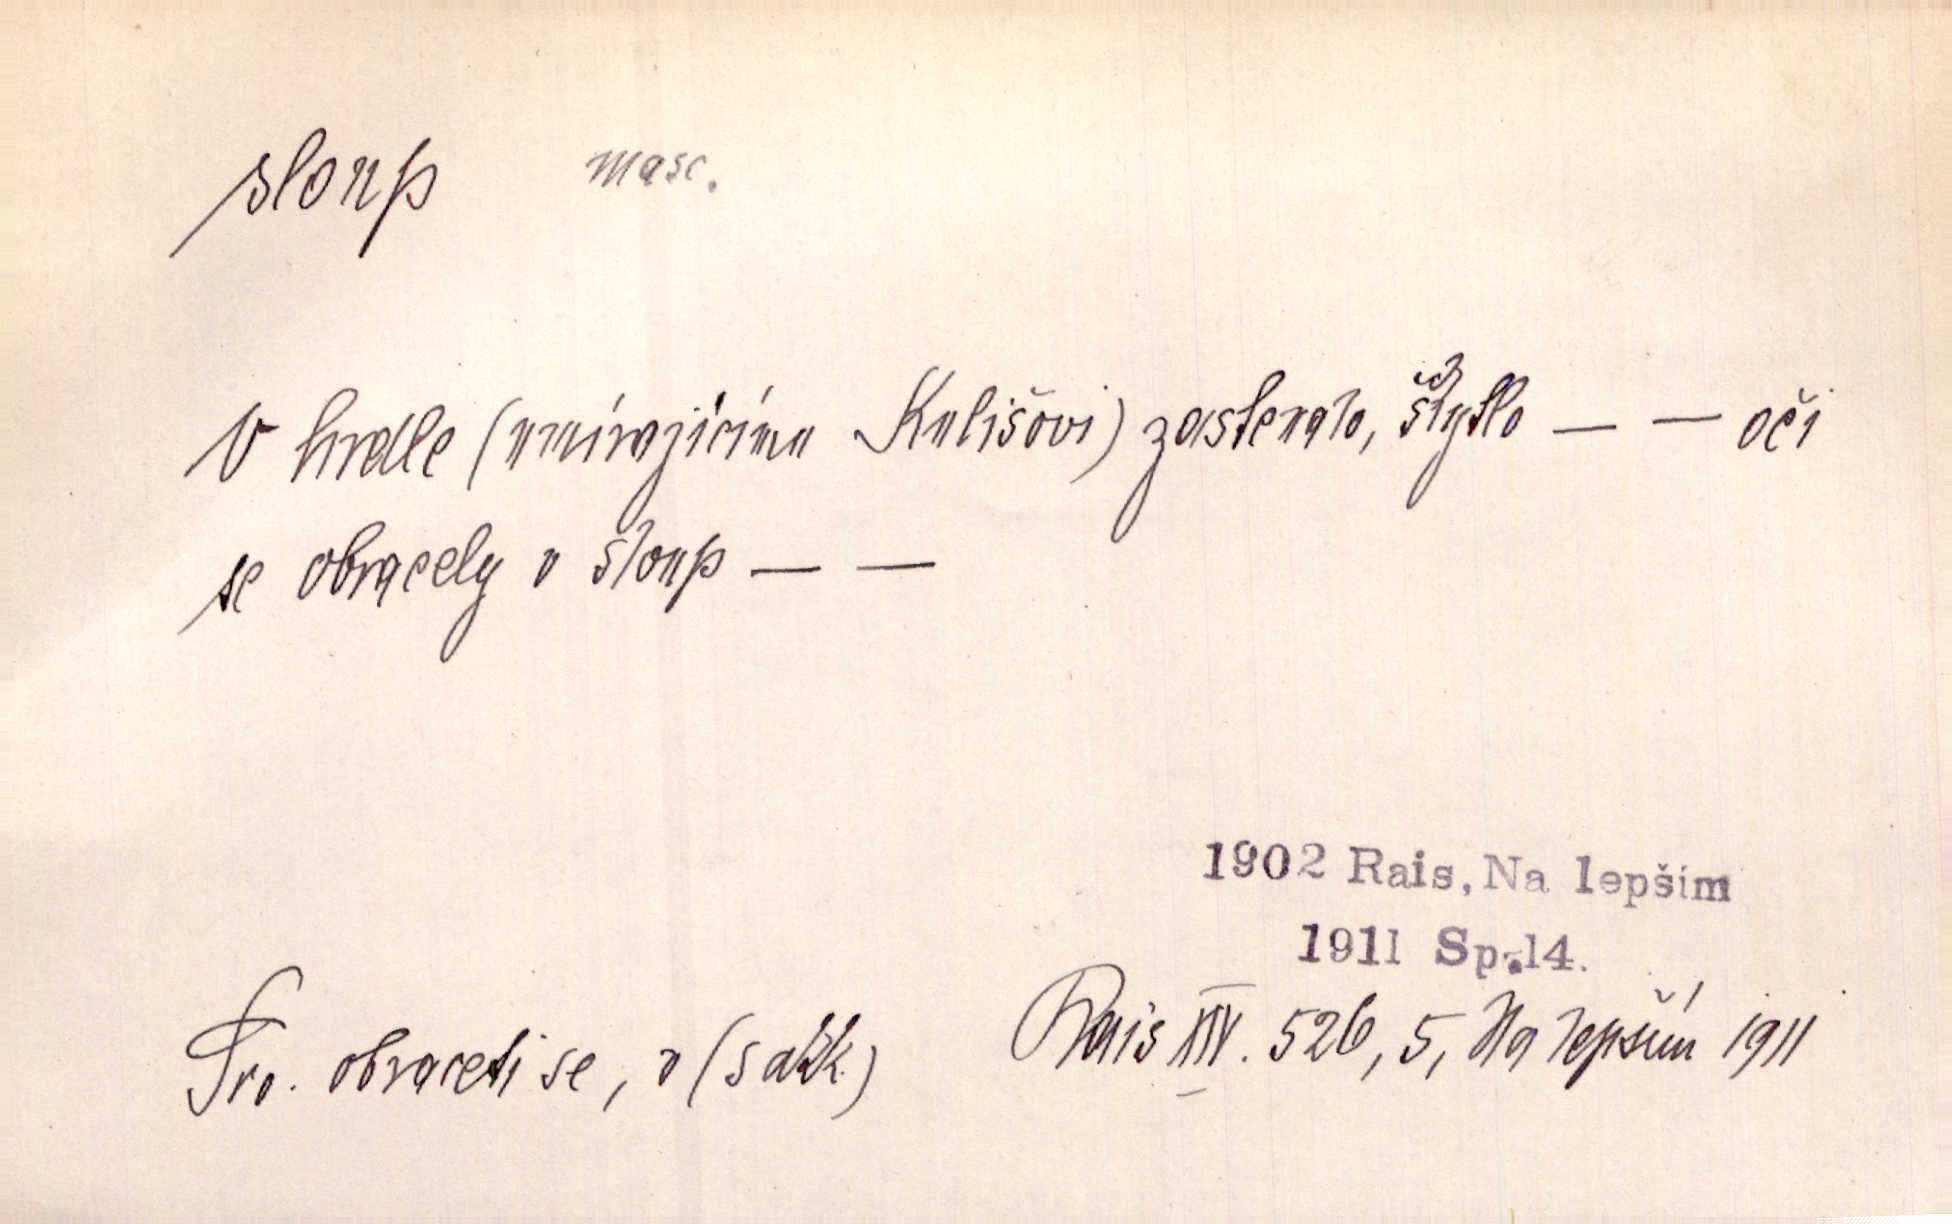 sloup masc.
V hrdle (umírajícímu Kulišovi) zastenalo, štytlo — — oči
se obracely v sloup — —
1902 Rais, Na lepším
1911 Sp. 14.
Srv. obraceti se, v (s akk.) Rais XIV. 526, 5, Na lepším 1911